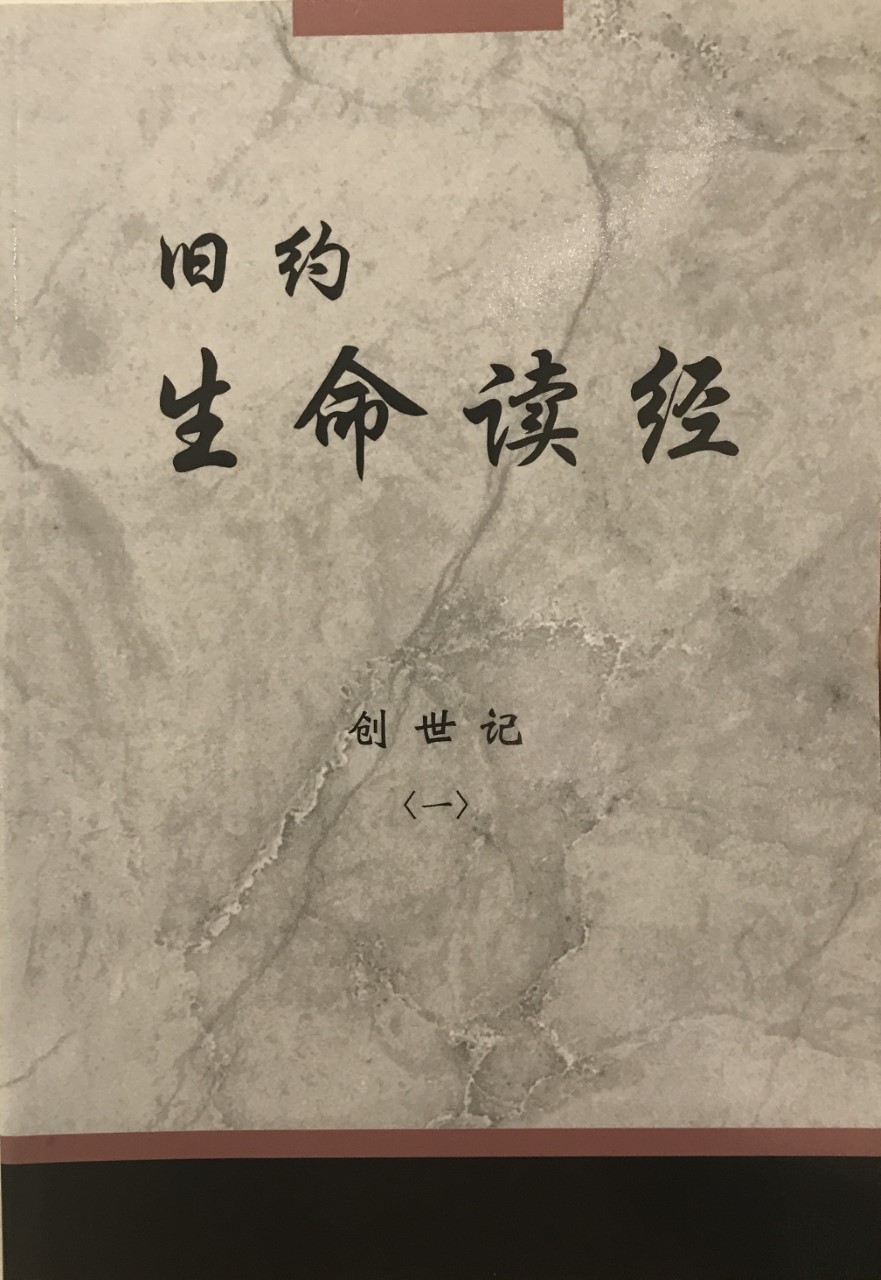 旧约
生命读经
创世记
〈一〉